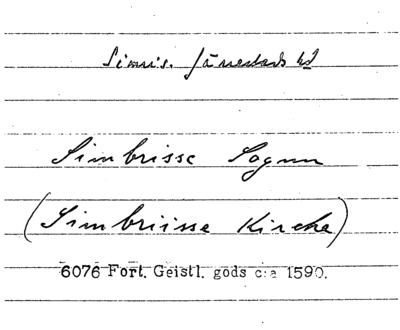 Simris. Järrestads hd
Simbrisse Sognn
(Simbriisse Kircke)
6076 Fort. Geistl. gods c:a 1590.